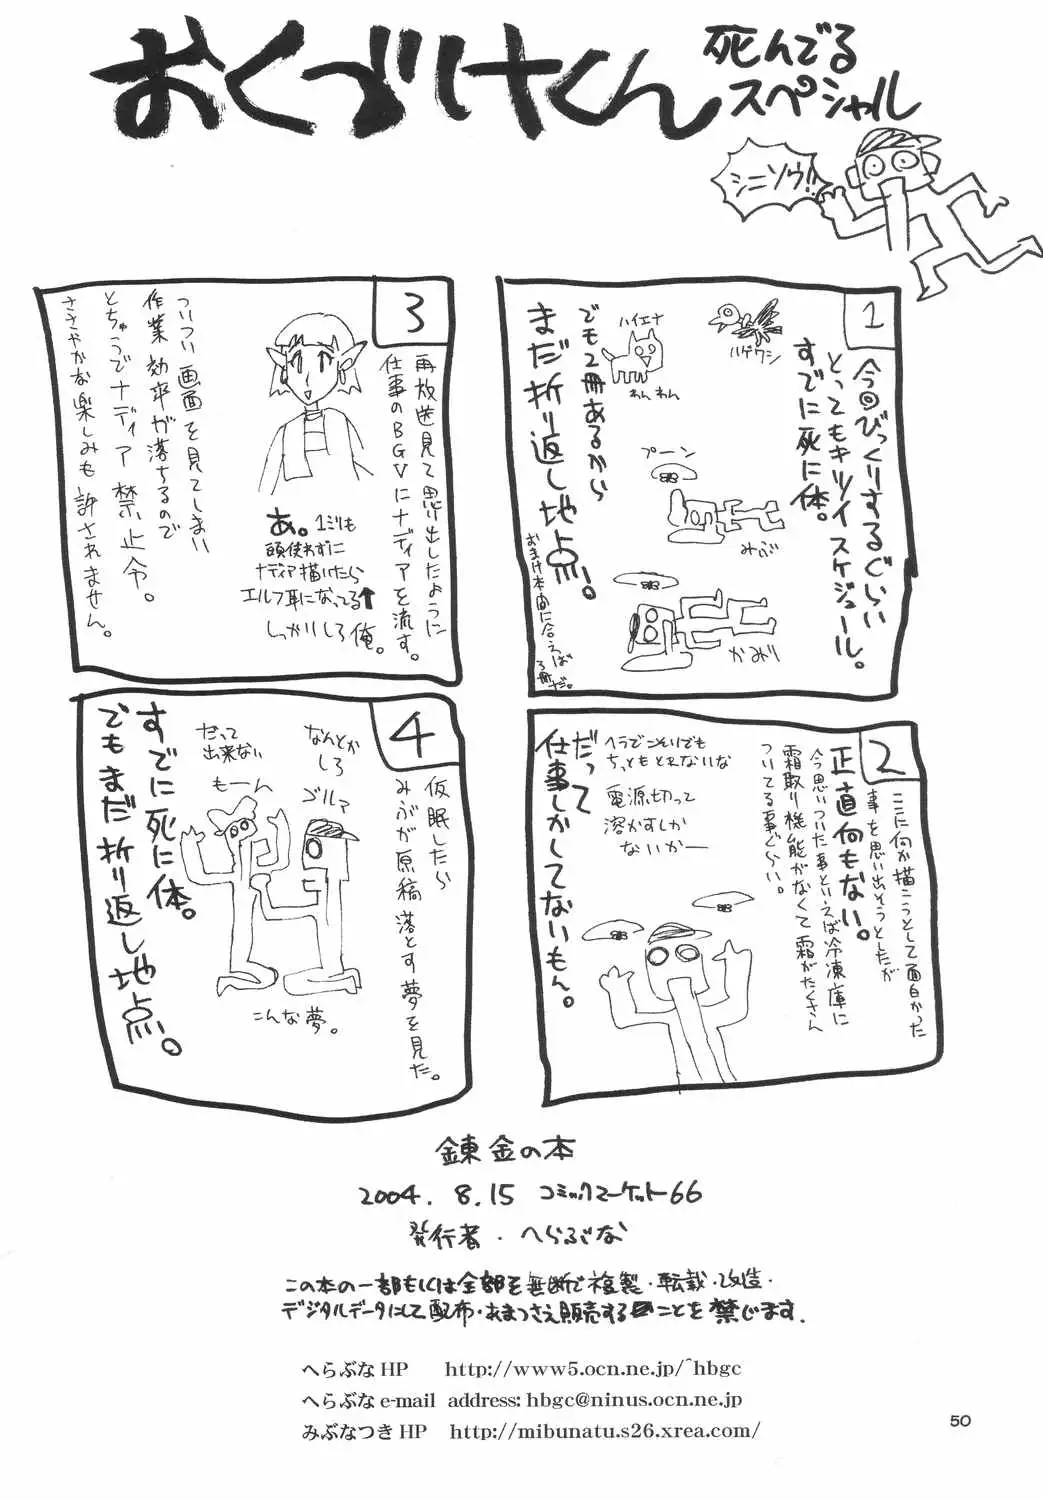 おくづけくん
死んでる
スペシャル
シニソウ!!
1
今回びっくりするぐらい
とってもキツイスケジュール。
すでに死に体。
ハゲワシ
ハイエナ
わんわん
でも2冊あるから
まだ折り返し地点。
おまけ本間に合えば
3冊だ。
プーン
みぶ
かみり
2
ここに何か描こうとして面白かった
事を思い出そうとしたが
正直何もない。
今思いついた事といえば冷凍庫に
霜取り機能がなくて霜がたくさん
ついてる事ぐらい。
ヘラでこそいでも
ちっともとれないな
電源切って
溶かすしか
ないかー
だって
仕事しかしてないもん。
3
再放送見て思い出したように
仕事のBGVにナディアを流す。
あ。1ミリも
頭使わずに
ナディア描いたら
エルフ耳になってる↑
しっかりしろ俺。
ついつい画面を見てしまい
作業効率が落ちるので
とちゅうでナディア禁止令。
ささやかな楽しみも許されません。
4
仮眠したら
みぶが原稿落とす夢を見た。
なんとか
しろ
ゴルァ
だって
出来ない
もーん
こんな夢。
すでに死に体。
でもまだ折り返し地点。
錬金の本
2004.8.15 コミックマーケット66
発行者・へらぶな
この本の一部もしくは全部を無断で複製・転載・改造・
デジタルデータにして配布・あまつさえ販売することを禁じます.
へらぶなHP http://www5.ocn.ne.jp/~hbgc
へらぶなe-mail address: hbgc@ninus.ocn.ne.jp
みぶなつきHP http://mibunatu.s26.xrea.com/
50